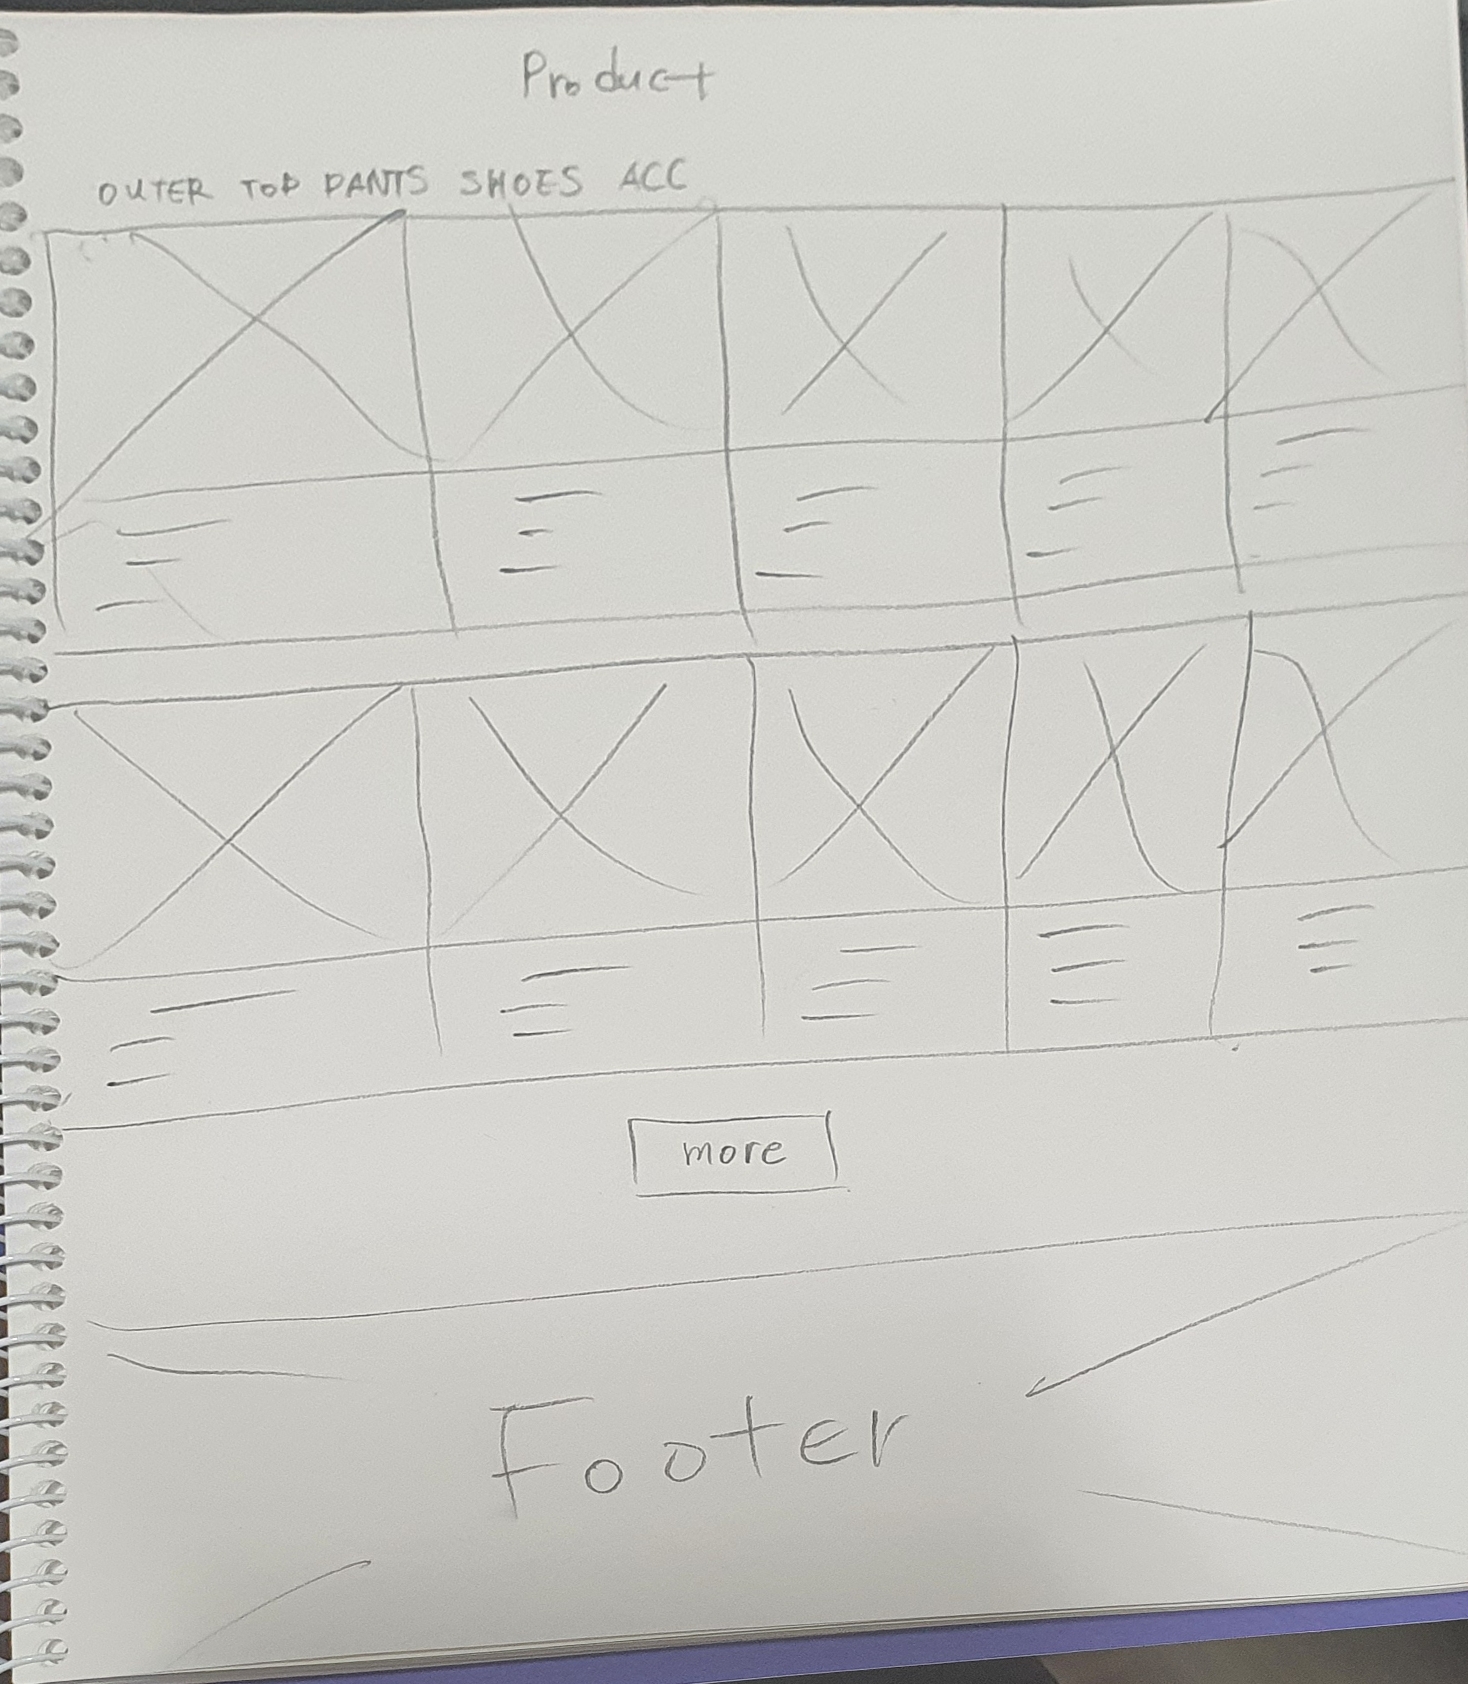 Product
OUTER TOP PANTS SHOES ACC
more
Footer